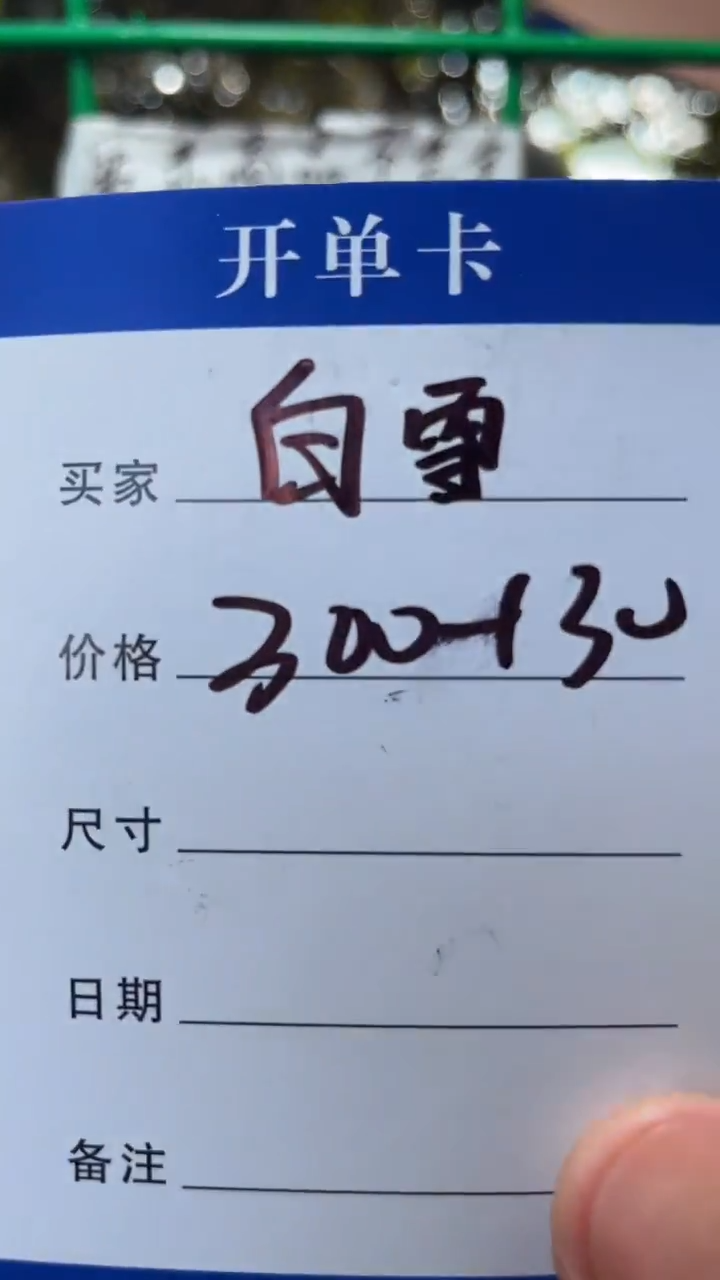 开单卡
买家 白雪
价格 300-130
尺寸
日期
备注